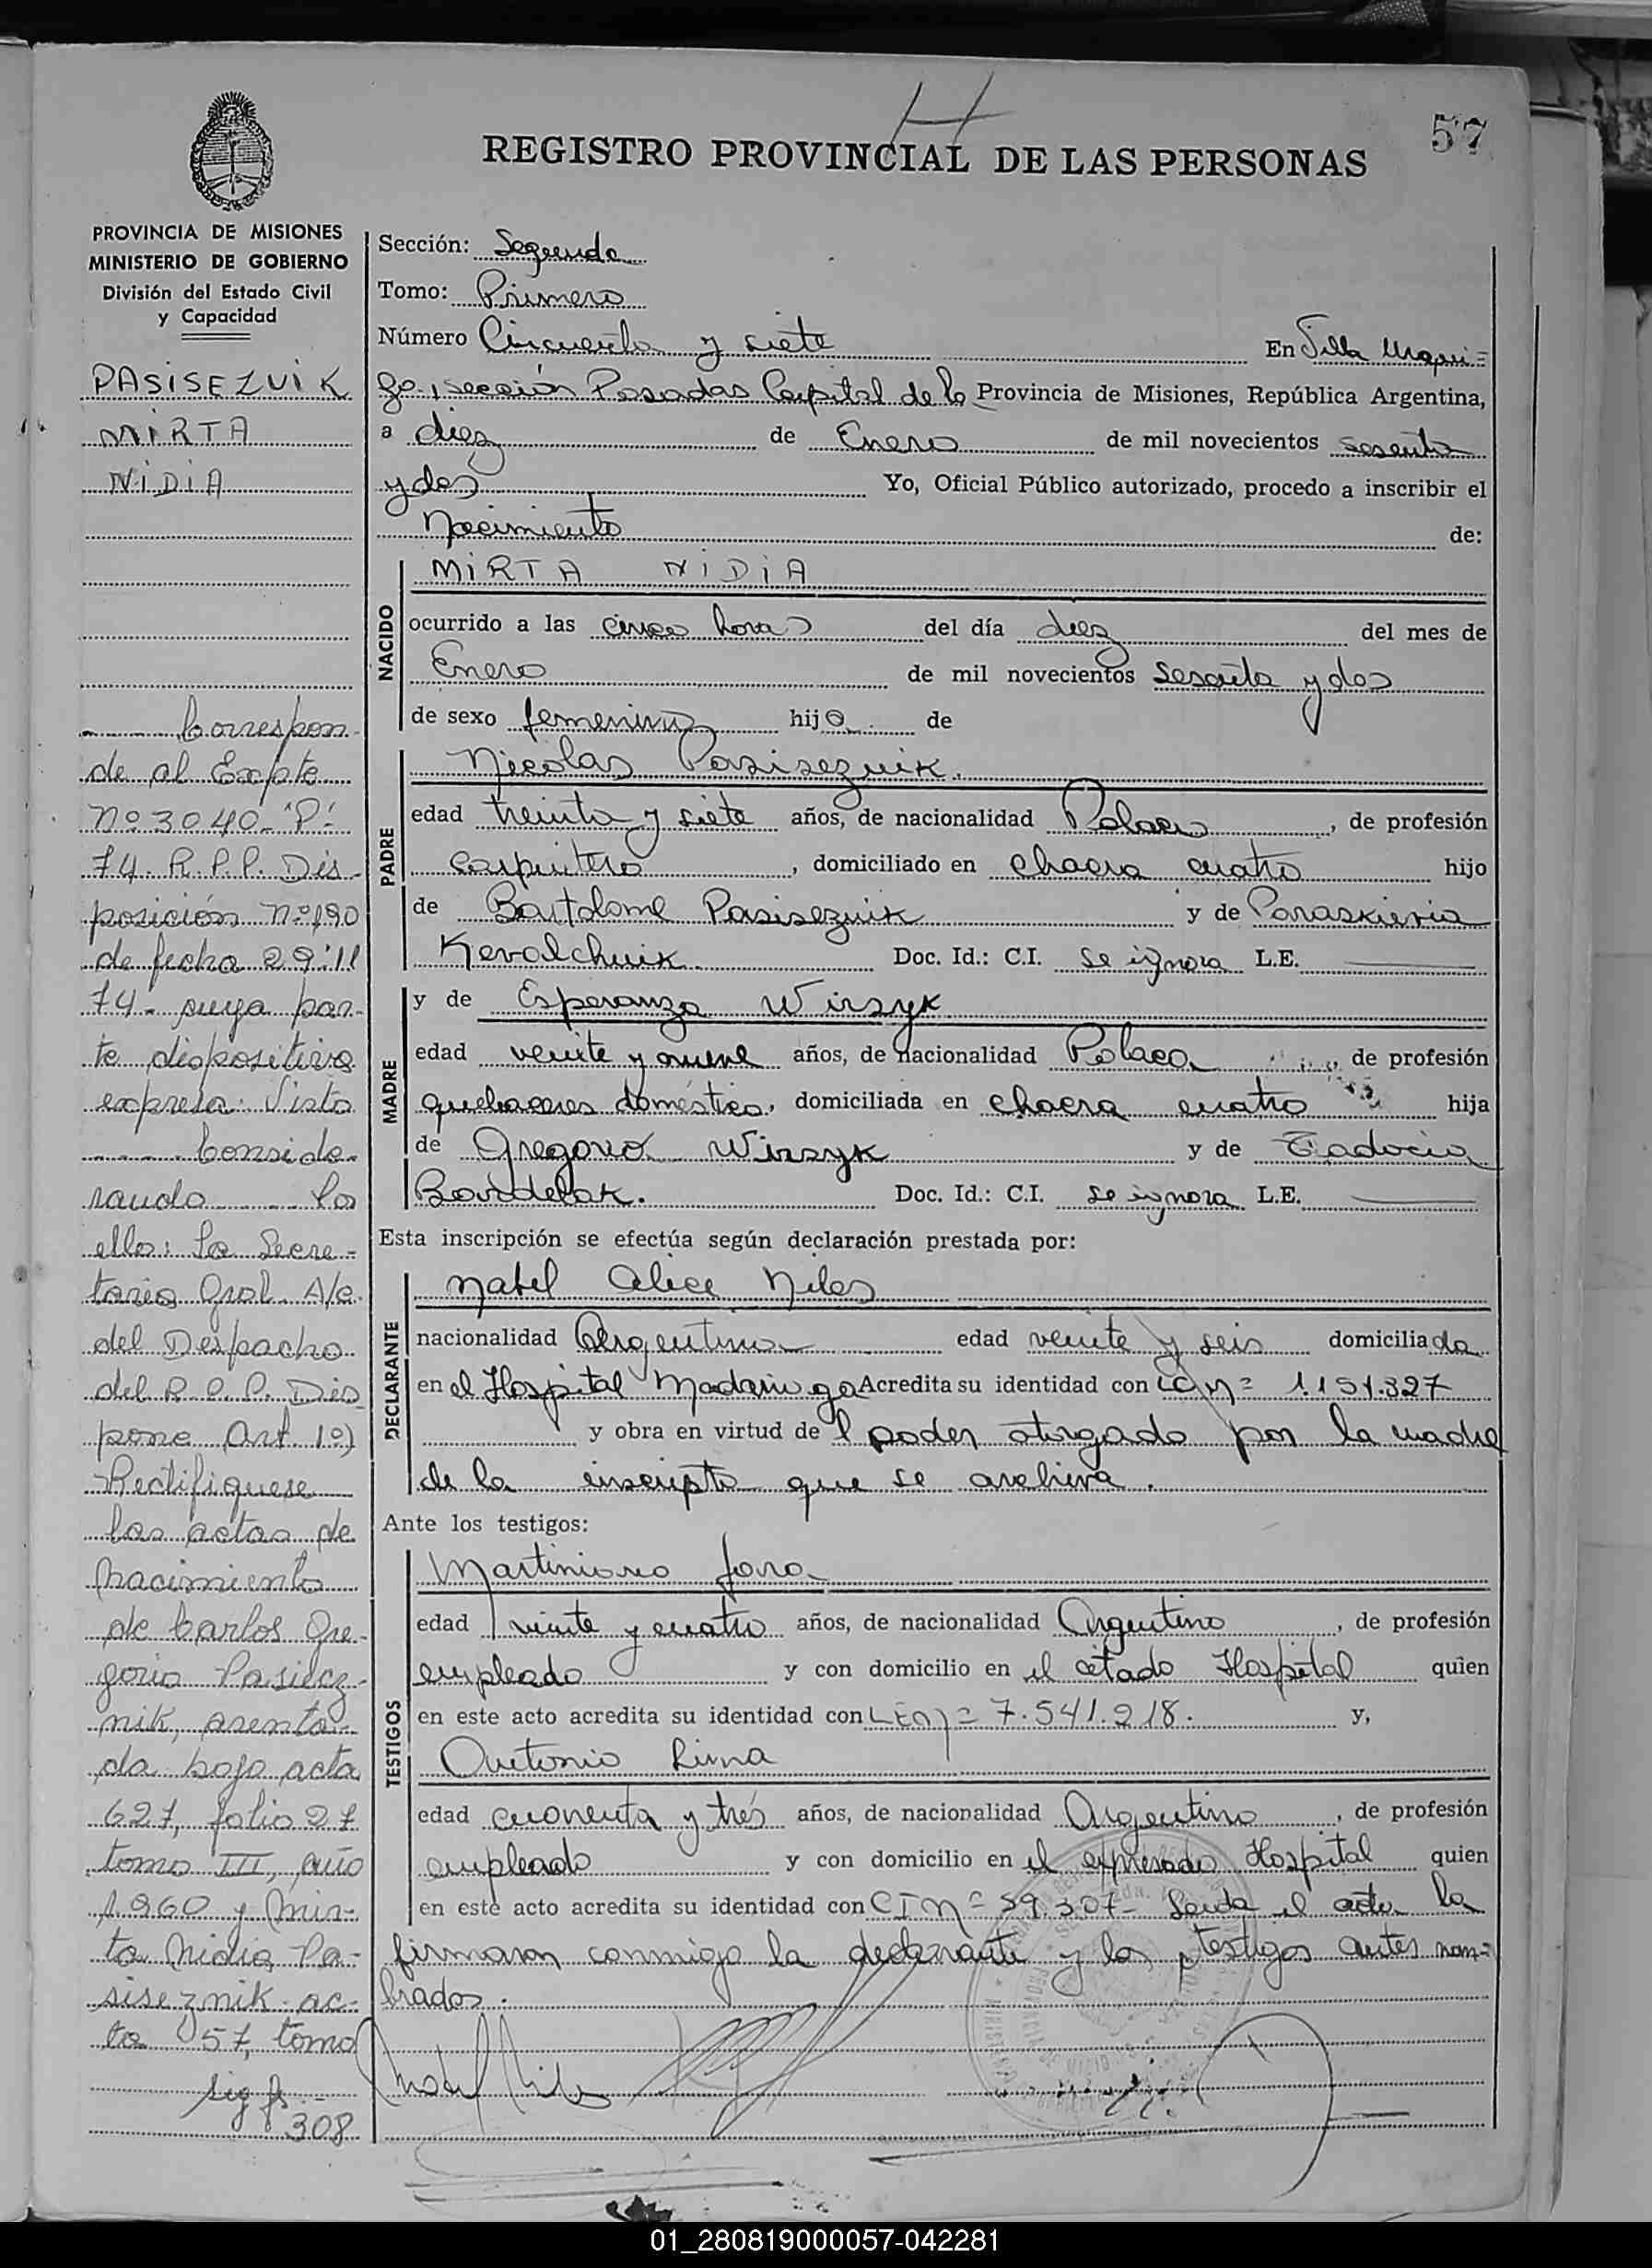 57
REGISTRO PROVINCIAL DE LAS PERSONAS
PROVINCIA DE MISIONES
MINISTERIO DE GOBIERNO
División del Estado Civil
y Capacidad
PASISEZUIK
MIRTA
NIDIA
- - - - Correspon-
de al Expte
Nº 3040 - "P"-
74. R.P.P. Dis-
posición nº 190
de fecha 29.11
74 - cuya par-
te dispositiva
expresa: Visto
- - - - Conside-
rando - - - - Po
ello: La Secre-
taria Gral. A/c
del Despacho
del R.P.P. Dis
pone Art 1º)
Rectifiquese
las actas de
nacimiento
de Carlos Gre-
gorio Pasiecz-
nik, asenta-
da bajo acta
627, folio 27
tomo III, año
1.960 y Mir-
ta Nidia Pa-
siseznik ac-
ta 57, tomo
sig fs. -
308
Sección: Segunda
Tomo: Primero
Número Cincuenta y siete En Villa Urqui=
za, sección Posadas Capital de la Provincia de Misiones, República Argentina,
a diez de Enero de mil novecientos sesenta
y dos Yo, Oficial Público autorizado, procedo a inscribir el
Nacimiento de:
NACIDO
MIRTA NIDIA
ocurrido a las cinco horas del día diez del mes de
Enero de mil novecientos sesenta y dos
de sexo femenino hija de
PADRE
Nicolas Pasiseznik.
edad treinta y siete años, de nacionalidad Polaco, de profesión
carpintero, domiciliado en chacra cuatro hijo
de Bartolome Pasiseznik y de Paraskievia
Kevalchuik Doc. Id.: C.I. se ignora L.E.
MADRE
y de Esperanza Wirsyk
edad veinte y nueve años, de nacionalidad Polaca, de profesión
quehaceres doméstico, domiciliada en chacra cuatro hija
de Gregorio Wirsyk y de
Bardelak. Doc. Id.: C.I. se ignora L.E.
Esta inscripción se efectúa según declaración prestada por:
DECLARANTE
Mabel Alice Niles
nacionalidad Argentina edad veinte y seis domiciliada
en el Hospital Madariaga Acredita su identidad con LC Nº 1.151.327
y obra en virtud del poder otorgado por la madre
de la inscripta que se archiva.
Ante los testigos:
TESTIGOS
Martiniano Jara
edad veinte y cuatro años, de nacionalidad Argentino, de profesión
empleado y con domicilio en el citado Hospital quien
en este acto acredita su identidad con LE Nº 7.541.218. y,
Antonio Rima
edad cuarenta y trés años, de nacionalidad Argentino, de profesión
empleado y con domicilio en el expresado Hospital quien
en este acto acredita su identidad con CI Nº 59.307- Leida el acta la
firmaron conmigo la declarante y los testigos antes nom=
brados.
01_280819000057-042281